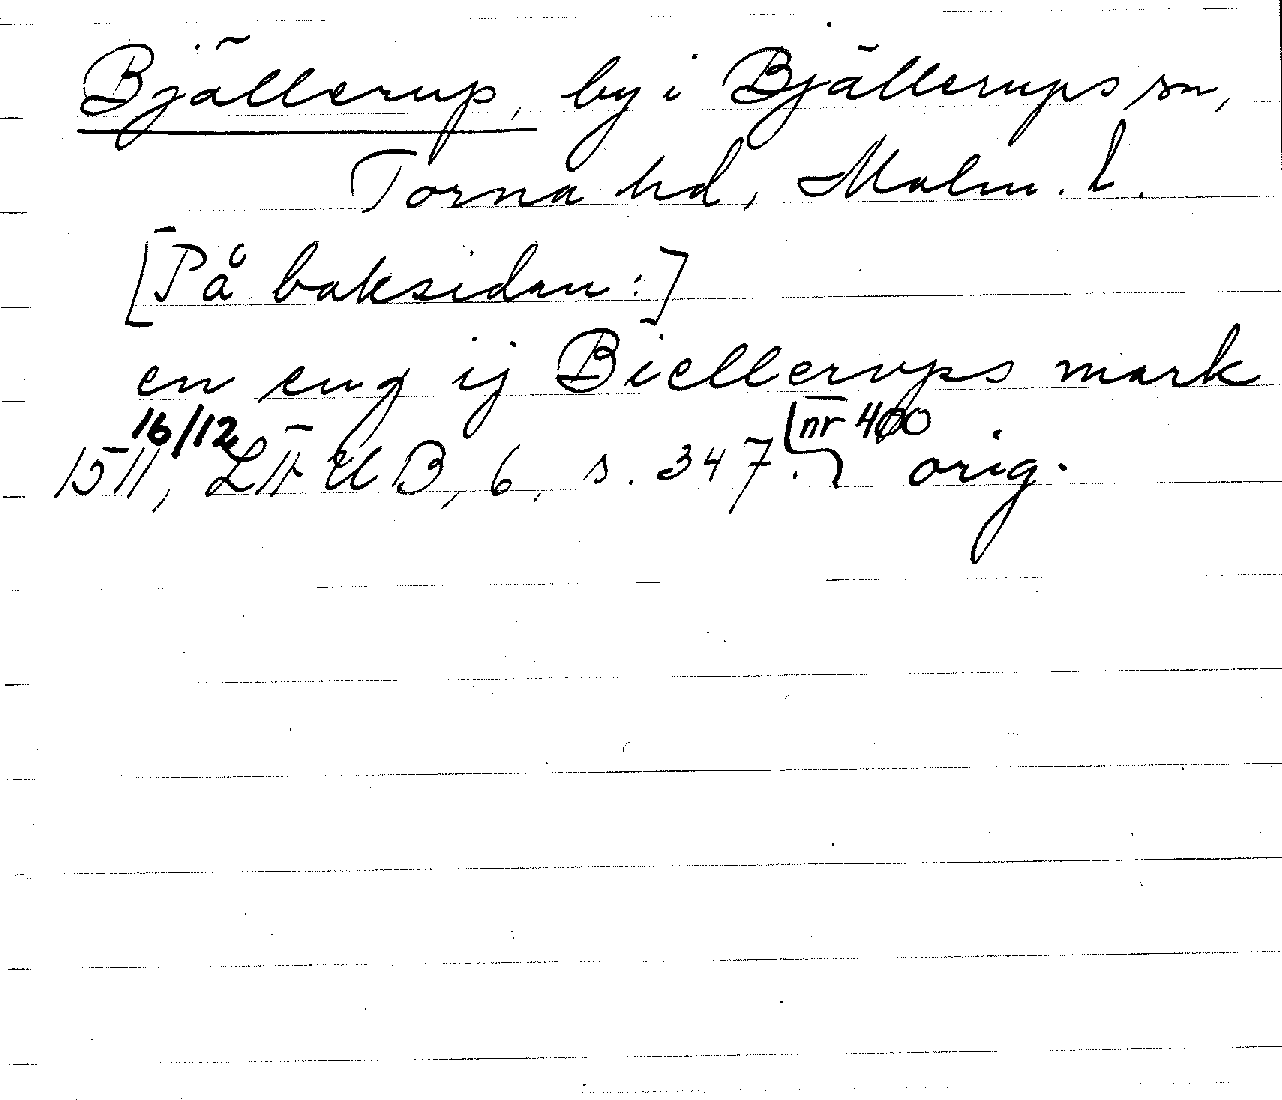 Bjällerup, by i Bjällerups sn,
Torna hd, Malm. l.
[På baksidan:]
en eng ij Biellerups mark
16/12 nr 400
1511, LÄUB, 6, s. 347. orig.